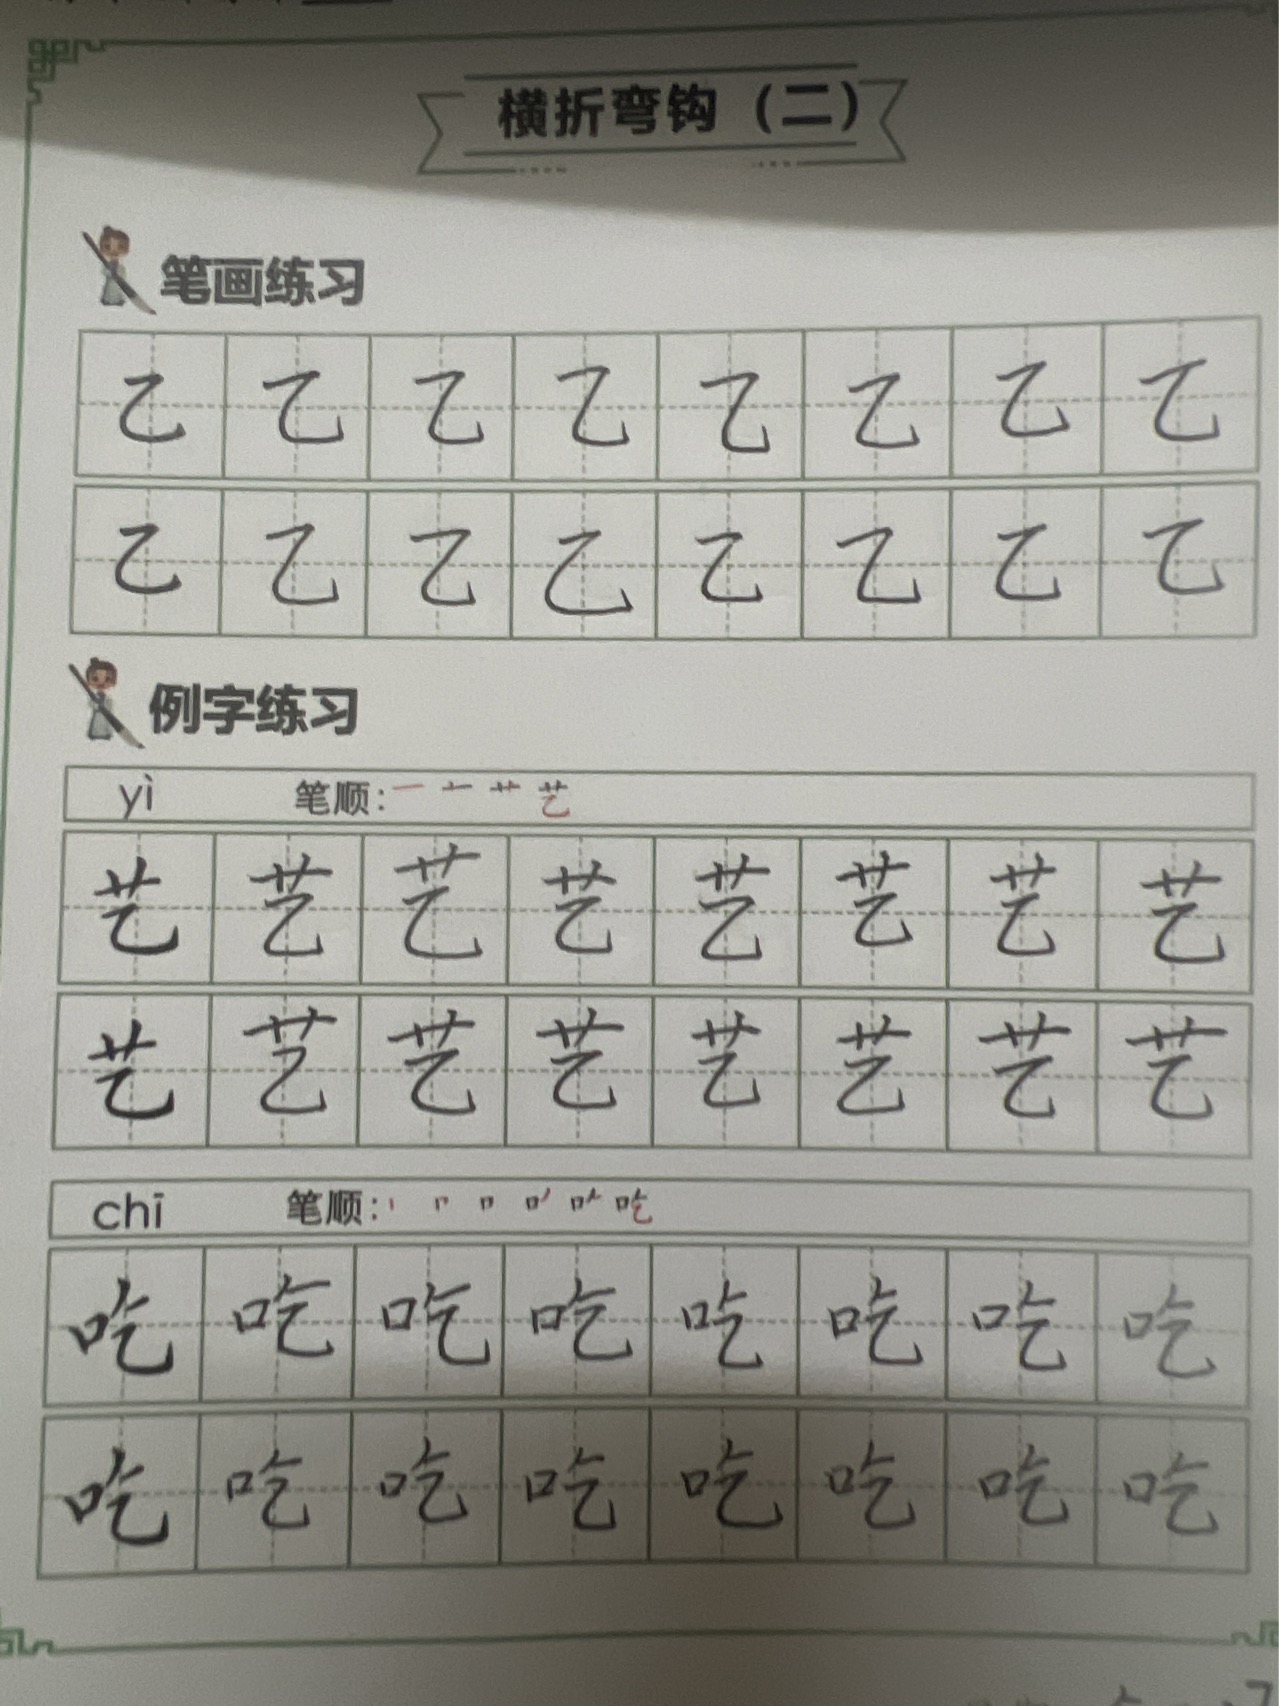 横折弯钩（二）
笔画练习
乙 乙 乙 乙 乙 乙 乙 乙
乙 乙 乙 乙 乙 乙 乙 乙
例字练习
yì 笔顺：一 十 艹 艺
艺 艺 艺 艺 艺 艺 艺 艺
艺 艺 艺 艺 艺 艺 艺 艺
chī 笔顺：丨 𠃍 口 吃
吃 吃 吃 吃 吃 吃 吃 吃
吃 吃 吃 吃 吃 吃 吃 吃